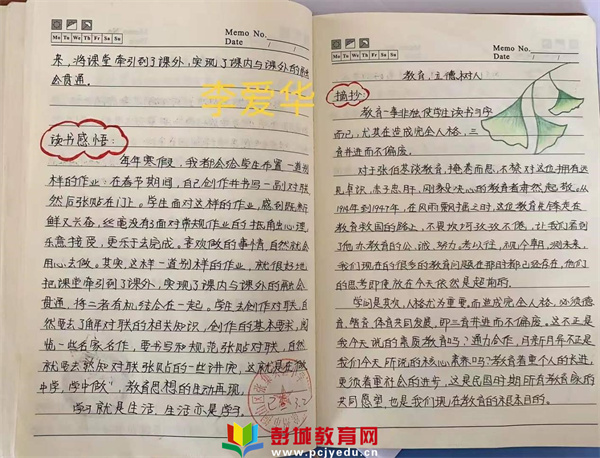 Memo No.
Mo Tu We Th Fr Sa Su
Date / /
来，将课堂牵引到了课外，实现了课内与课外的融
会贯通。
李爱华
读书感悟：
每年寒假，我都会给学生布置一道别
样的作业：在春节期间，自己创作并书写一副对联
然后张贴在门上。学生面对这样的作业，感到既新
鲜又兴奋，丝毫没有了面对常规作业的抵触心理
乐意接受，更乐于去完成。喜欢做的事情，自然就会
用心去做。其实，这样一道别样的作业，就很好地
把课堂牵引到了课外，实现了课内与课外的融会
贯通，将二者有机结合在一起。学生去创作对联，自
然要去了解对联的相关知识，创作的基本要求，阅
读一些名家名作，要书写和规范张贴对联，自然
就要去熟知对联张贴的一些讲究，这就是在“做
中学，学中做”教育思想的生动再现。
学习就是生活，生活亦是学习。
Memo No.
Mo Tu We Th Fr Sa Su
Date / /
教育，立德树人
摘抄
教育一事非独使学生读书习字
而已，尤其在造成完全人格，三
育并进而不偏废。
对于张伯苓谈教育，掩卷而思，不禁对这位拥有远
见卓识，赤子忠肝，刚毅决心的教育者肃然起敬。从
1914年到1947年，在风雨飘摇之时，这位教育先锋走在
教育救国的路上，不畏坎坷孜孜不倦，让我们看到
了他办教育的公、诚、努力。考以往，观今朝，测未来，
我们现在的很多的教育问题在那时都已经存在，他们
的思考即使放在今天依然是超前的。
学问是其次，人格尤为重要，而造成完全人格，必须德
育、智育、体育共同发展，即三育并进而不偏废。这不正是
我今天说的素质教育吗？通力合作，月新月异不正是
我们今天所说的核心素养吗？教育着重个人的长进，
更须着重社会的进步，这是民国时期所有教育家的
共同愿望，也是我们现在教育的根本目的。
彭城教育网
www.pcjyedu.cn